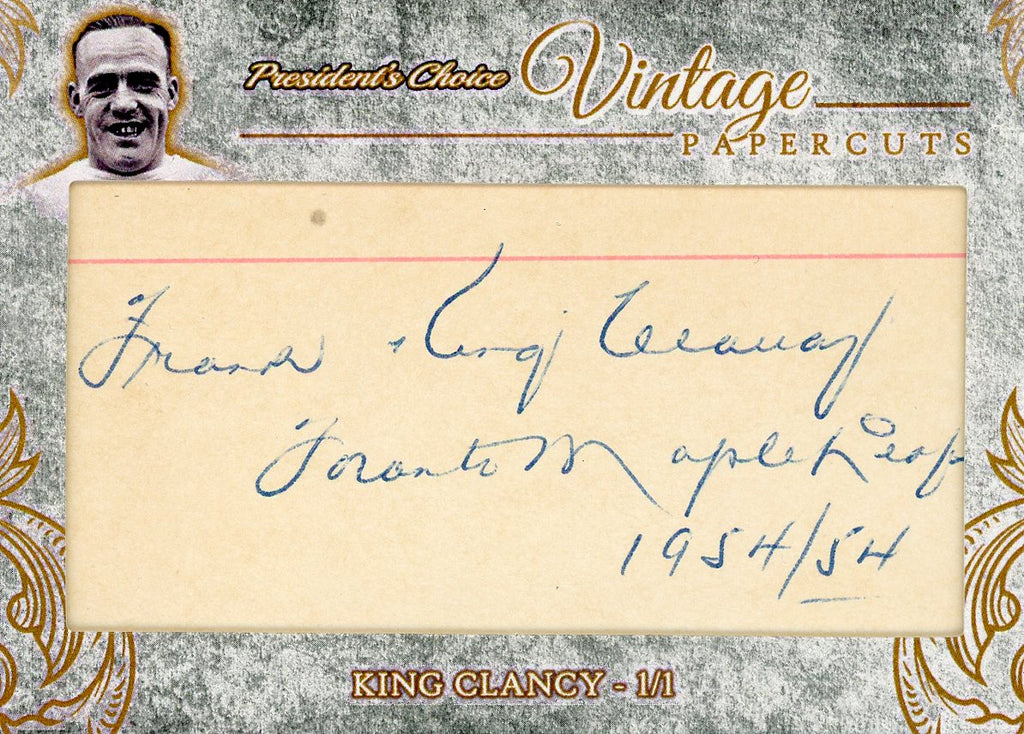 President's Choice Vintage
PAPERCUTS
Frank King Clancy
Toronto Maple Leaf
1954/54
KING CLANCY - 1/1